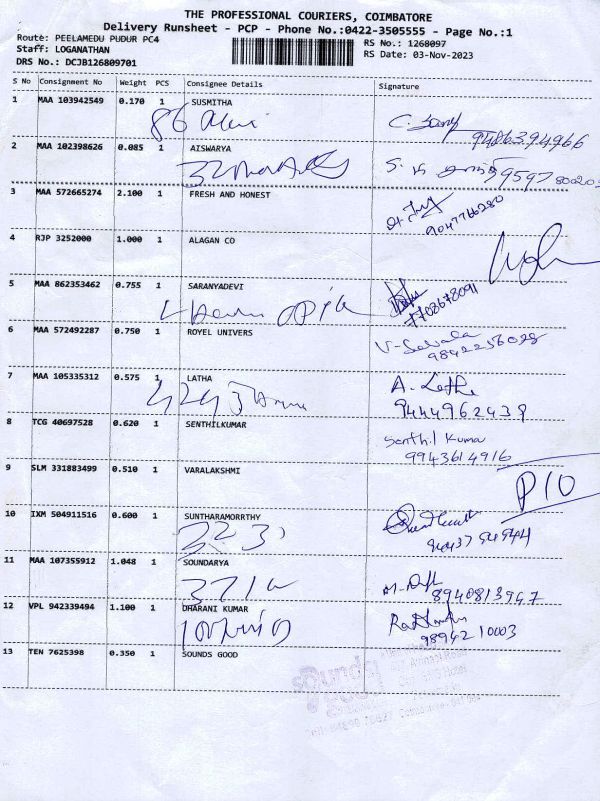 THE PROFESSIONAL COURIERS, COIMBATORE
Delivery Runsheet - PCP - Phone No.:0422-3505555 - Page No.:1
Route: PEELAMEDU PUDUR PC4
Staff: LOGANATHAN
DRS No.: DCJB126809701
RS No.: 1268097
RS Date: 03-Nov-2023
S No Consignment No Weight PCS Consignee Details Signature
1 MAA 103942549 0.170 1 SUSMITHA
86
9486394966
2 MAA 102398626 0.085 1 AISWARYA
3 MAA 572665274 2.100 1 FRESH AND HONEST
9047766280
4 RJP 3252000 1.000 1 ALAGAN CO
5 MAA 862353462 0.755 1 SARANYADEVI
7708678091
6 MAA 572492287 0.750 1 ROYEL UNIVERS
9842256028
7 MAA 105335312 0.575 1 LATHA
A. Latha
9444962439
8 TCG 40697528 0.620 1 SENTHILKUMAR
Senthil Kuma
9943614916
9 SLM 331883499 0.510 1 VARALAKSHMI
P10
10 IXM 504911516 0.600 1 SUNTHARAMORRTHY
11 MAA 107355912 1.048 1 SOUNDARYA
8940813947
12 VPL 942339494 1.100 1 DHARANI KUMAR
9894210003
13 TEN 7625398 0.350 1 SOUNDS GOOD